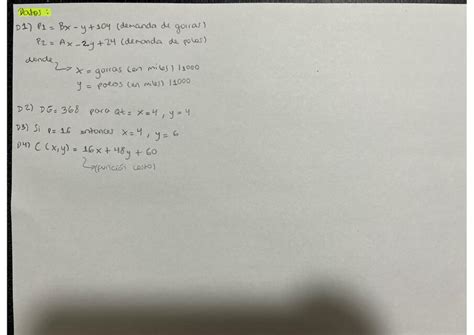 Datos:
D1) P1 = Bx - y + 104 (demanda de gorras)
P2 = Ax - 2y + 24 (demanda de polos)
donde
x = gorras (en miles) | 1000
y = polos (en miles) | 1000
D2) DG = 368 para Qt = x = 4, y = 4
D3) Si P = 16 entonces x = 4, y = 6
D4) C(x,y) = 16x + 48y + 60